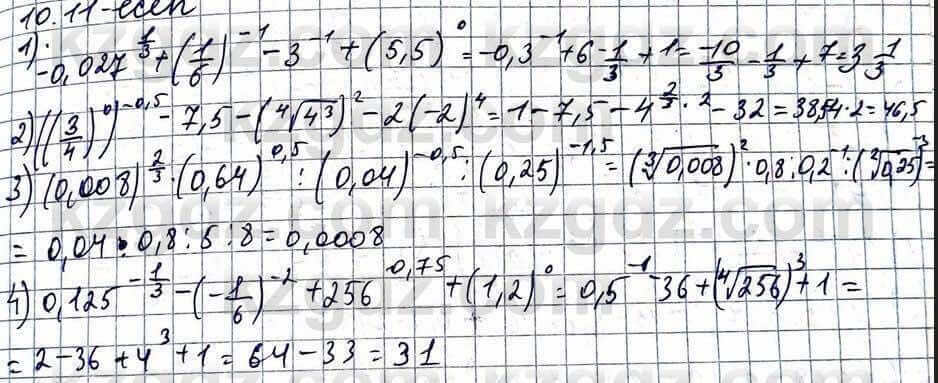 10.11-есеп
1) -0,027^{1/3} + (1/6)^{-1} - 3^{-1} + (5,5)^0 = -0,3^{-1} + 6 - 1/3 + 1 = -10/3 - 1/3 + 7 = 3 1/3
2) ((3/4)^0)^{-0,5} - 7,5 - (∜4^3)^2 - 2(-2)^4 = 1 - 7,5 - 4^{2/3 · 2} - 32 = 38,54 · 2 = 46,5
3) (0,008)^{2/3} · (0,64)^{0,5} : (0,04)^{-0,5} : (0,25)^{-1,5} = (∛0,008)^2 · 0,8 : 0,2^{-1} : (²√0,25)^{-3} =
= 0,04 · 0,8 : 5 : 8 = 0,0008
4) 0,125^{-1/3} - (-1/6)^{-2} + 256^{0,75} + (1,2)^0 = 0,5^{-1} - 36 + (∜256)^3 + 1 =
= 2 - 36 + 4^3 + 1 = 64 - 33 = 31